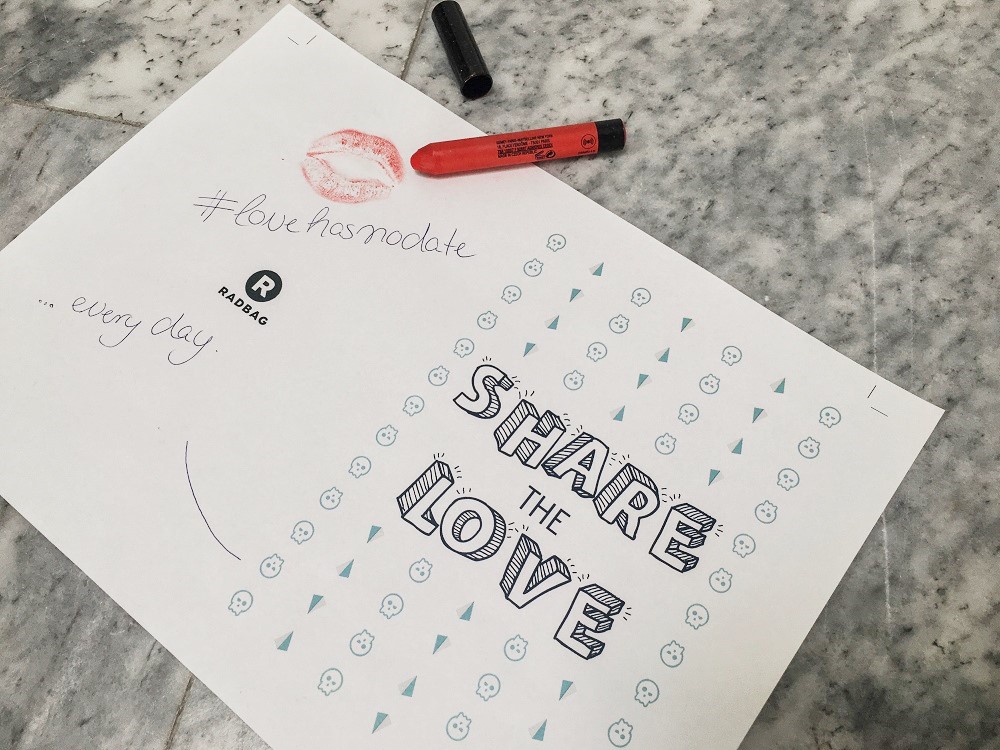 #lovehasnodate
R
RADBAG
... every day.
SHARE
THE
LOVE